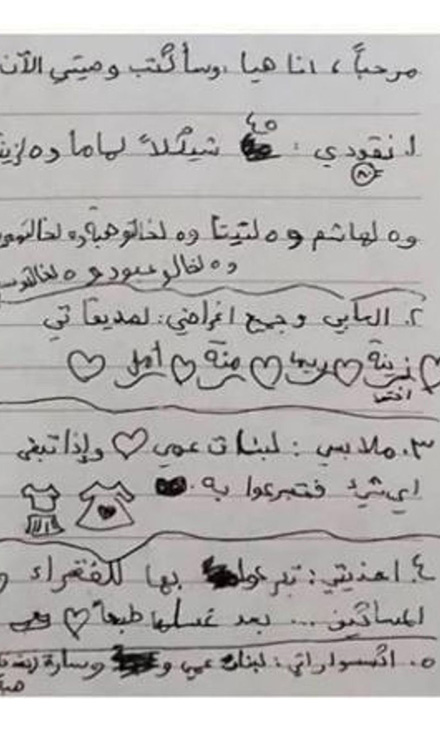 مرحباً، انا هيا وسأكتب وصيتي الآن
٤٥
١. نقودي : شيكلاً لماما و٥ لزين
و٥ لهاشم و٥ لتيتا و٥ لخالتو هبة و٥ لخالتو
و٥ لخالو عبود و٥ لخالتو
٢. العابي وجميع اغراضي: لصديقاتي
زينة ريما منة أمل
اختي
٣. ملابسي : لبنات عمي وإذا تبقى
اي شيء فتبرعوا به.
٤. احذيتي: تبرعوا بها للفقراء
المساكين ... بعد غسلها طبعاً
٥. اكسسواراتي: لبنات عمي و وسارة